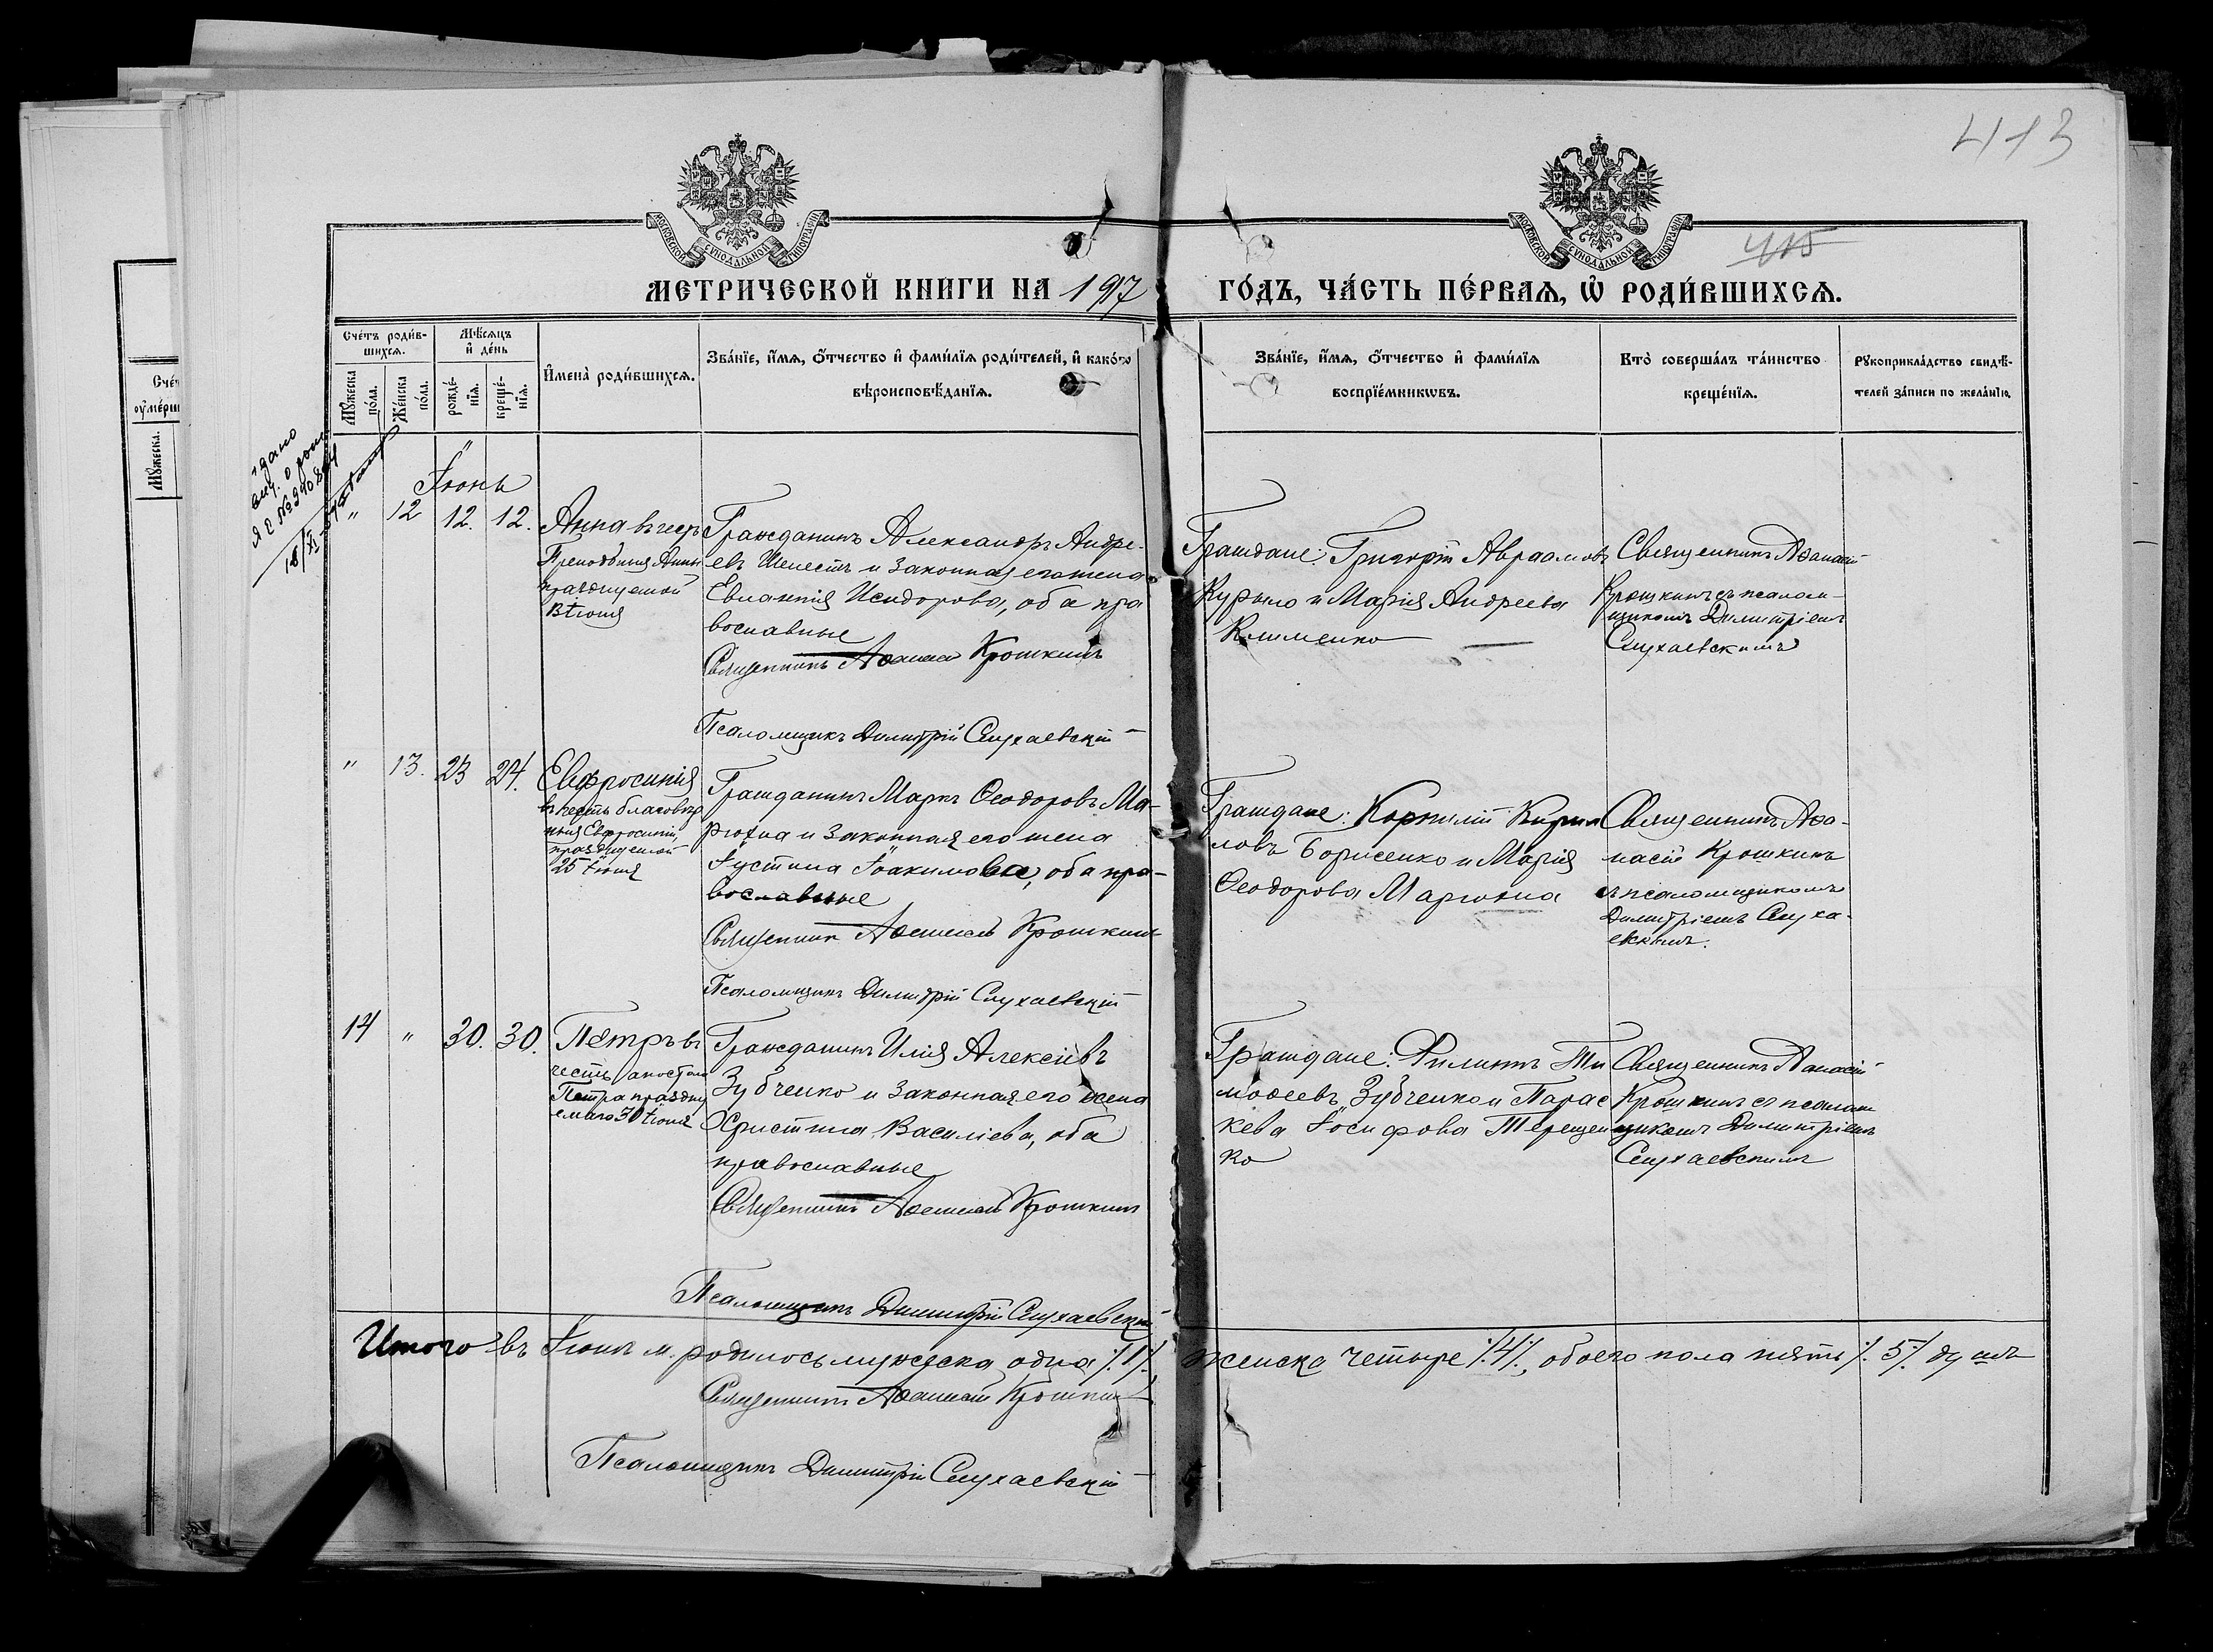 413
415
МОСКОВСКОЙ СѴНОДАЛЬНОЙ ТИПОГРАФІИ
МОСКОВСКОЙ СѴНОДАЛЬНОЙ ТИПОГРАФІИ
МЕТРИЧЕСКОЙ КНИГИ НА 1917
ГО́ДЪ, ЧА́СТЬ ПЕ́РВАѦ, Ѽ РОДИ́ВШИХСѦ.
Сче́тъ роди́в-
шихсѧ.
Мѣ́сѧцъ
и҆ де́нь
Мꙋ́жеска
по́ла.
Же́нска
по́ла.
рожде́-
нїѧ.
креще́-
нїѧ.
И҆мена̀ роди́вшихсѧ.
Зва́нїе, и҆́мѧ, ѻ҆́тчество и҆ фами́лїѧ роди́телей, и҆ како́гѡ
вѣроисповѣ́данїѧ.
Зва́нїе, и҆́мѧ, ѻ҆́тчество и҆ фами́лїѧ
воспрїе́мникѡвъ.
Кто̀ соверша́лъ та́инство
креще́нїѧ.
Рꙋкоприкла́дство свидѣ́-
телей за́писи по жела́нїю.
Сче́т
ᲂу҆ме́рш
Мꙋ́жеска.
Іюнь
" 12 12. 12.
Анна въ честь
Преподобныя Анны
празднуемой
13 іюня
Гражданинъ Александръ Андре-
евъ Шелестъ и законная его жена
Евлампія Исидорова, оба пра
вославные
Священникъ Аѳанасій Крошкинъ
Псаломщикъ Димитрій Слухаевскій
Граждане: Григорій Авраамовъ
Курыло и Марія Андреева
Клименко
Священникъ Аѳанасій
Крошкинъ съ псалом-
щикомъ Димитріемъ
Слухаевскимъ
" 13. 23 24.
Евфросинія
въ честь благовѣр
ныя Евфросиніи,
празднуемой
25 іюня
Гражданинъ Маркъ Ѳеодоровъ Ма-
рюхна и законная его жена
Іустина Іоакимова, оба пра-
вославные
Священникъ Аѳанасій Крошкинъ
Псаломщикъ Димитрій Слухаевскій
Граждане: Корнилій Кирил
ловъ Борисенко и Марія
Ѳеодорова Марюхна
Священникъ Аѳа-
насій Крошкинъ
съ псаломщикомъ
Димитріемъ Слуха-
евскимъ.
14 " 30. 30.
Петръ въ
честь апостола
Петра праздну
емаго 30 іюня
Гражданинъ Илія Алексіевъ
Зубченко и законная его жена
Христина Василіева, оба
православные
Священникъ Аѳанасій Крошкинъ
Псаломщикъ Димитрій Слухаевскій
Граждане: Филиппъ Ти
моѳеевъ Зубченко и Парас
кева Іосифова Терещен
ко
Священникъ Аѳанасій
Крошкинъ съ псалом
щикомъ Димитріемъ
Слухаевскимъ
Итого въ Іюнѣ м. родилось мужеска одна /.1/. женска четыре /.4/., обоего пола пять /.5/. душъ
Священникъ Аѳанасій Крошкинъ
Псаломщикъ Димитрій Слухаевскій